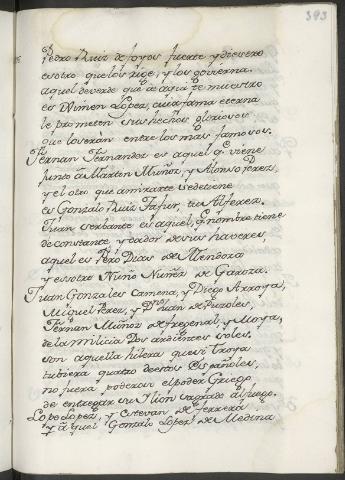 393
Pedro Ruiz de foyos fuerte y d severo
es otro que los rige, y los govierna.
aquel de verde que de aqui te muestro
es Ximen Lopez, cuia fama eterna
le prometen sus hechos gloriosos
que lo serán entre los mas famosos.
Fernan Fernandez es aquel q. viene
junto á Martin Muñoz y Alonso Perez,
y el otro que à mirarte se detiene
es Gonzalo Ruiz Tafur, tu Alferez.
Juan serbante es aquel, q. nombre tiene
de constante y dador de sus haveres,
aquel es Pero Dias de Mendoza
y es otro Nuño Nuñez de Garoza.
Juan Gonzales Camena, y Diego Arroya,
Miguel Perez, y Dn. Juan de Puzoles,
Fern. Muñoz de fregenal, y Moya,
de la milicia Dos ardientes soles.
son aquella hilera que si Troya
tubiera quatro de estos Españoles,
no fuera poderoso el poder Griego
de entregar su Ilion sagrado al fuego.
Lope Lopez, y Estevan de ferrera
y aquel Gonzalo Lopez de Medina